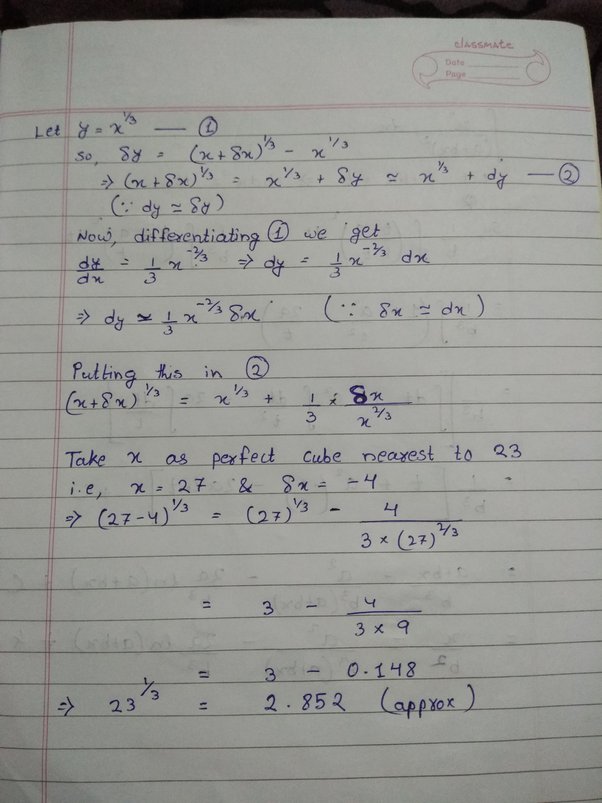 classmate
Date
Page
Let y = x^1/3 — ①
so, δy = (x + δx)^1/3 - x^1/3
⇒ (x + δx)^1/3 = x^1/3 + δy ≃ x^1/3 + dy — ②
(∵ dy ≃ δy)
Now, differentiating ① we get
dy/dx = 1/3 x^-2/3 ⇒ dy = 1/3 x^-2/3 dx
⇒ dy ≃ 1/3 x^-2/3 δx (∵ δx ≃ dx)
Putting this in ②
(x + δx)^1/3 = x^1/3 + 1/3 × δx/x^2/3
Take x as perfect cube nearest to 23
i.e, x = 27 & δx = -4
⇒ (27-4)^1/3 = (27)^1/3 - 4/3 × (27)^2/3
= 3 - 4/3 × 9
= 3 - 0.148
⇒ 23^1/3 = 2.852 (approx)